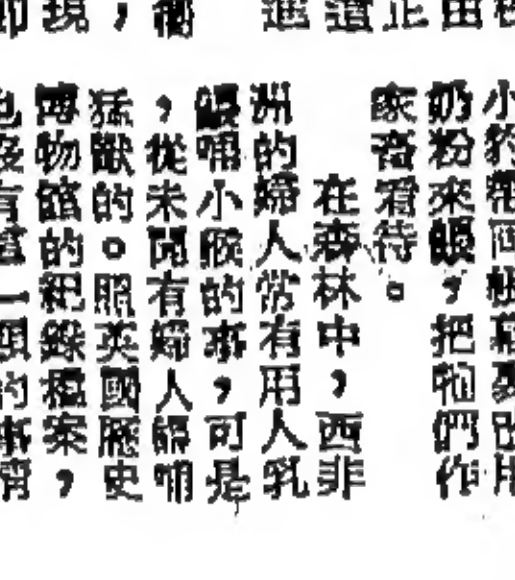 小豹帶回
奶粉來餵,把牠們作
家畜看待。
在森林中,西非
洲的婦人常有用人乳
餵哺小猴的事,可是
,從未聞有婦人餵哺
猛獸的。照英國歷史
博物館的紀錄檔案,
有一的事